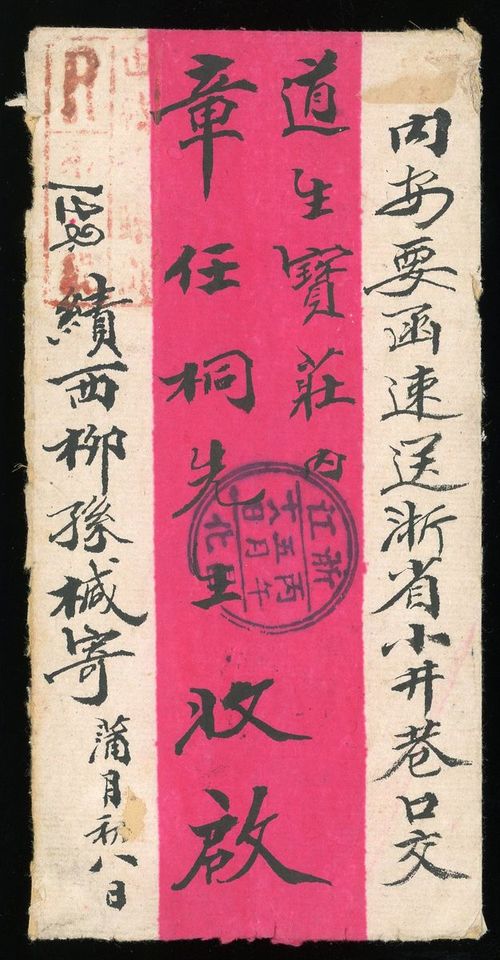 内安要函速送浙省小井巷口交
道生寶莊内
章任桐先生收啟
績西柳孫椷寄
蒲月初八日
浙江
丙午
五月
十六日
化
R